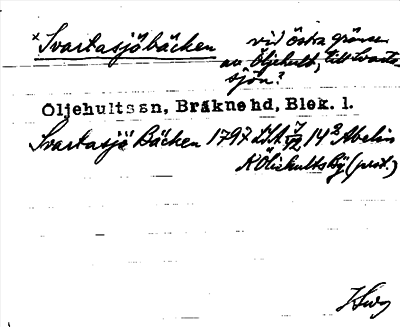 × Svartasjöbäcken
vid östra gränsen
av Öljehult, till Svarta-
sjön?
Öljehults sn, Bräkne hd, Blek. l.
Svartasjö Bäcken 1797 LSA 14³ Abelin
K Öliehults By (prot.)